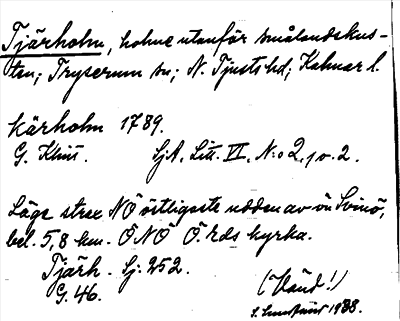 Tjärholm, holme utanför smålandskus-
ten; Tryserum sn; N. Tjusts hd; Kalmar l.
Kärholm 1789.
G. Klint. SjA, Litt. VI, N:o 2, 1 o. 2.
Läge strax NÖ östligaste udden av ön Svinö,
bel. 5,8 km. ÖNÖ Ö. Eds kyrka.
Tjärh. Sj. 252.
G. 46.
(Vänd!)
1938.